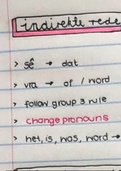 indirekte rede
> sê → dat
> vra → of / word
> follow group 3 rule
> change pronouns
> het, is, was, word →